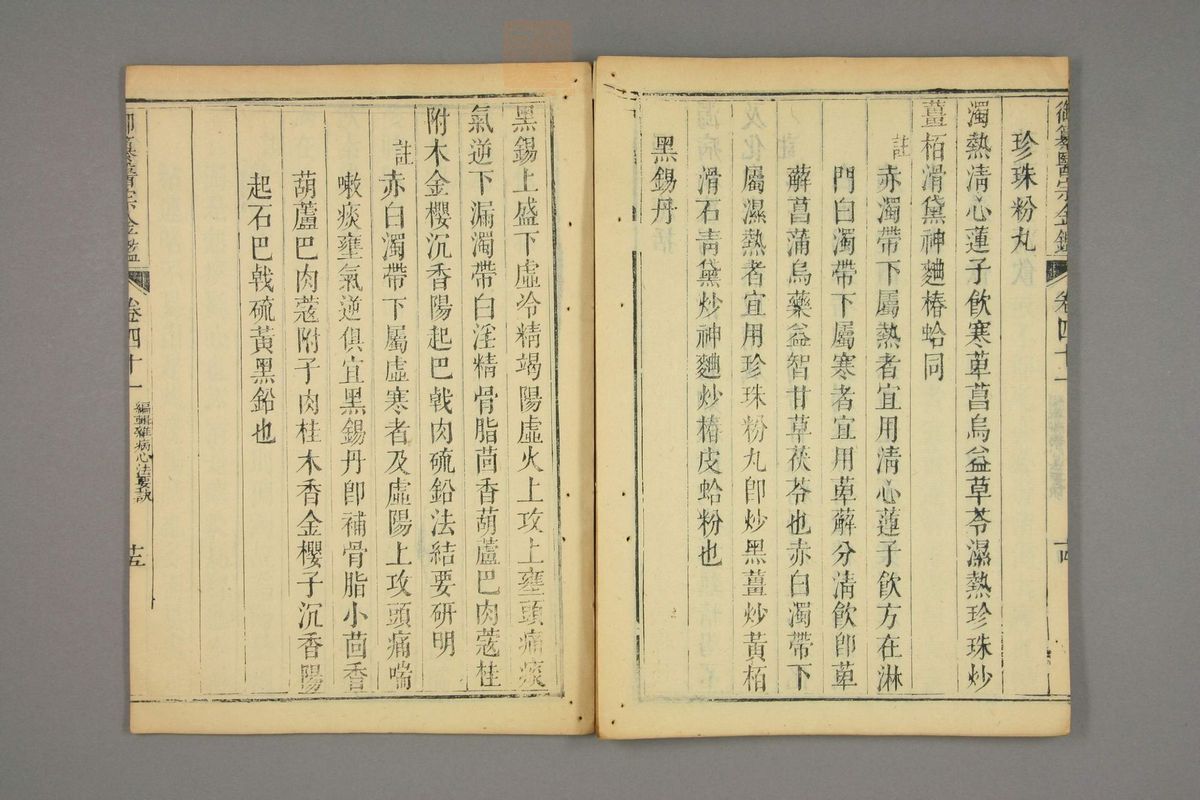 御纂醫宗金鑑 卷四十一 十四
珍珠粉丸
濁熱淸心蓮子飲寒萆菖烏益草苓濕熱珍珠炒
薑栢滑黛神麯椿蛤同
註赤濁帶下屬熱者宜用淸心蓮子飲方在淋
門白濁帶下屬寒者宜用萆薢分淸飲卽萆
薢菖蒲烏藥益智甘草茯苓也赤白濁帶下
屬濕熱者宜用珍珠粉丸卽炒黑薑炒黃栢
滑石靑黛炒神麯炒椿皮蛤粉也
黑錫丹
黑錫上盛下虛冷精竭陽虛火上攻上壅頭痛痰
氣逆下漏濁帶白淫精骨脂茴香葫蘆巴肉蔻桂
附木金櫻沉香陽起巴戟肉硫鉛法結要研明
註赤白濁帶下屬虛寒者及虛陽上攻頭痛喘
嗽痰壅氣逆俱宜黑錫丹卽補骨脂小茴香
葫蘆巴肉蔻附子肉桂木香金櫻子沉香陽
起石巴戟硫黃黑鉛也
御纂醫宗金鑑 卷四十一 編輯雜病心法要訣 十五